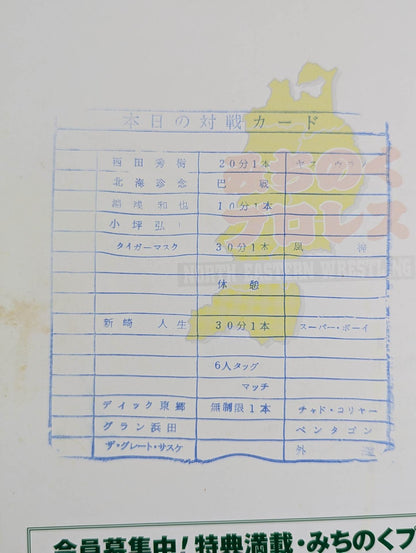 本日の対戦カード
西田秀樹 20分1本 ヤス・ウラノ
北海珍念 巴戦
和也 10分1本
小坪弘
タイガーマスク 30分1本
みちのくプロレス
NORTH EASTERN WRESTLING
休憩
新崎人生 30分1本 スーパー・ボーイ
6人タッグ
マッチ
ディック東郷 無制限1本 チャド・コリヤー
グラン浜田 ペンタゴン
ザ・グレート・サスケ 外道
会員募集中!特典満載・みちのくプ